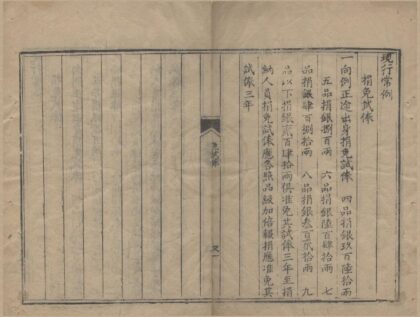 現行常例
捐免試俸
一向例正途出身捐免試俸　四品捐銀玖百陸拾兩
五品捐銀捌百兩　六品捐銀陸百肆拾兩　七
品捐銀肆百捌拾兩　八品捐銀叁百貳拾兩　九
品以下捐銀貳百肆拾兩俱准免其試俸三年至捐
納人員捐免試俸應各照品級加倍報捐應准免其
試俸三年
免試俸